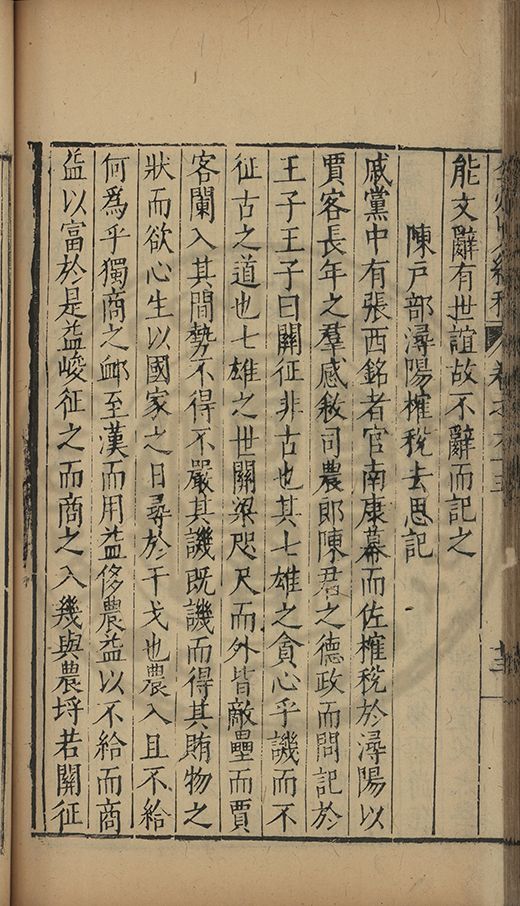 能文辭有世誼故不辭而記之
陳戶部潯陽榷稅去思記
戚黨中有張西銘者官南康幕而佐榷稅於潯陽以
賈客長年之羣感敘司農郎陳君之德政而問記於
王子王子曰關征非古也其七雄之貪心乎譏而不
征古之道也七雄之世關梁咫尺而外皆敵壘而賈
客闌入其間勢不得不嚴其譏既譏而得其賄物之
狀而欲心生以國家之日尋於干戈也農入且不給
何爲乎獨商之䘏至漢而用益侈農益以不給而商
益以富於是益峻征之而商之入幾與農埓若關征